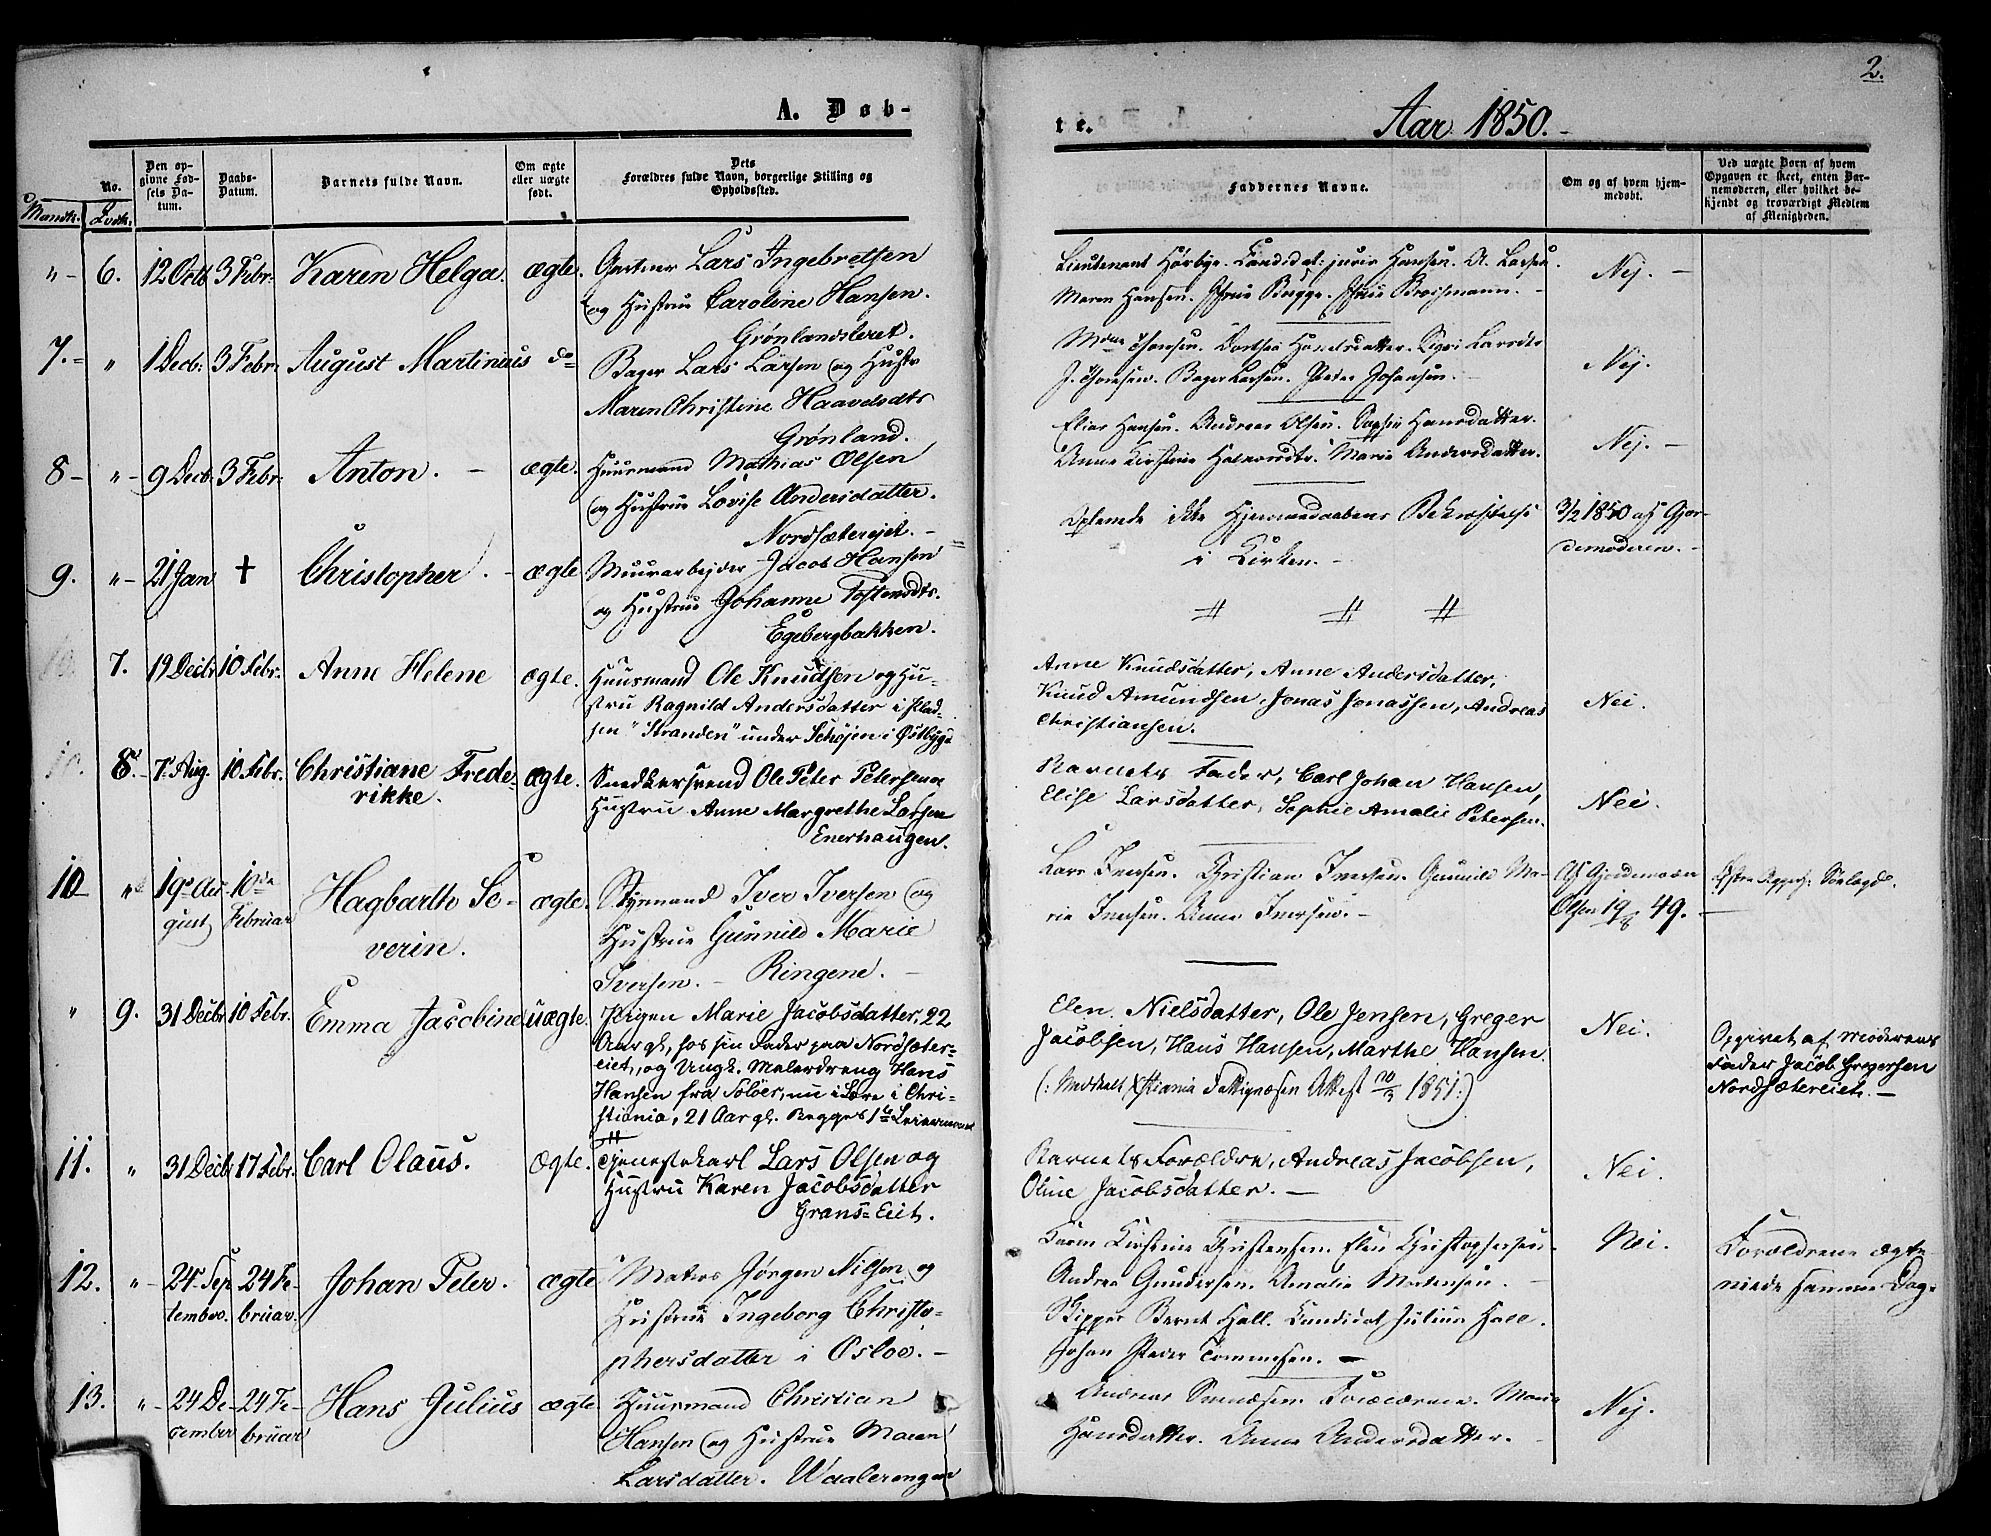 2.
A. Døb-
te.
Aar 1850.
No.
Mandk. Qvdk.
Den op-
givne Fød-
sels Da-
tum.
Daabs-
Datum.
Barnets fulde Navn.
Om ægte
eller uægte
født.
Dets
Forældres fulde Navn, borgerlige Stilling og
Opholdssted.
Faddernes Navne.
Om og af hvem hjem-
medøbt.
Ved uægte Børn af hvem
Opgaven er skeet, enten Bar-
nemoderen, eller hvilket be-
kjendt og troværdigt Medlem
af Menigheden.
"- 6. 12 Octb 3 Febr: Karen Helga. ægte. Gartner Lars Ingebretsen
og Hustrue Caroline Hansen.
Grønlandsleret.
Lieutenant Hørbye. Candidat: juris Hansen. A. Larsen.
Maren Hansen. Bugge.
Nej. -
7. " 1 Decb: 3 Febr: August Martinius do Bager Lars Larsen og Hustr
Maren Christine Haavelsdtr
Grønland.
Dorthea Hansdatter. Sigri Larsdtr
Bager Larsen. Peter Johansen.
Nej.
8- "- 9 Decb. 3 Febr: Anton. - ægte. Huusmand Mathias Olsen
og Hustrue Lovise Andersdatter.
Nordsæterejet. -
Elias Hansen. Andreas Olsen. Sophie Hansdatter.
Anne Kirstine Halvorsdtr. Marie Andersdatter.
Nej. -
9. "- 21 Jan + Christopher. - ægte Muurarbejder Jacob Hansen
og Hustrue Johanne Tostensdtr.
Egebergbakken.
ikke Hjemmedaabens Bekræftelse
i Kirken. -
3/2 1850 af Gjor-
demoderen. -
7. 19 Decbr 10 Febr. Anne Helene ægte. Huusmand Ole Knudsen og Hu-
stru Ragnild Andersdatter i Plad-
sen "Stranden" under Schøjen i Østbygd
Anne Knudsdatter, Anne Andersdatter,
Knud Amundsen, Jonas Jonassen, Andreas
Christiansen.
Nei.
8. 7. Aug. 10 Febr. Christiane Frede-
rikke. ægte. Snedkersvend Ole Peter Petersen o
Hustru Anne Margrethe Larsen
Enerhaugen.
Barnets Fader, Carl Johan Hansen,
Elise Larsdatter, Sophie Amalie Petersen.
Nei.
10 " 19de Au-
gust 10de
Februar Hagbarth Se-
verin. ægte. Styrmand Iver Iversen og
Hustrue Gunnild Marie
Iversen. - Ringene. -
Lars Iversen. Christian Iversen. Gunnild Ma-
rie Iversen. Anne Iversen. -
Af Gjordemoder
Olsen 19/8 49.
" 9. 31 Decbr 10 Febr. Emma Jacobine uægte. Pigen Marie Jacobsdatter, 22
Aar gl, hos sin Fader paa Nordsæter-
eiet, og Ungk. Malerdreng Hans
Hansen fra Soløer, nu i Lære i Chri-
stiania, 21 Aar gl. Begges 1ste Leiermaal
Elen Nielsdatter, Ole Jensen, Greger
Jacobsen, Hans Hansen, Marthe Hansen.
(: Meddeelt Xstiania Fattigvæsen Attest 1851:)
Nei.
Opgivet af Moderens
Fader Jacob Gregersen
Nordsætereiet. -
11. " 31 Decbr 17 Febr. Carl Olaus. Ægte. Tjenestekarl Lars Olsen og
Hustru Karen Jacobsdatter
Grans-Eiet.
Barnets Forældre, Andreas Jacobsen,
Oline Jacobsdatter. -
Nei.
12. "- 24. Sep
tember. 24 Fe-
bruar. Johan Peter. ægte Matros Jørgen Nilsen og
Hustrue Ingeborg Christo-
phersdatter i Osloe. -
Karen Kirstine Christensen. Elen Christophersen.
Andrea Gundersen. Amalie Mortensen. -
Skipper Bernt Hall. Candidat Julius Hall.
Johan Peder Tommesen. -
Nei.
Forældrene ægte-
viede samme Dag.
13. "- 24 De-
cember 24 Fe-
bruar Hans Julius ægte. Huusmand Christian
Hansen og Hustrue Maren
Larsdatter. Waalerengen
Andreas Svendsen. Forældrene. Maria
Hansdatter. Anne Andersdatter. -
Nej.